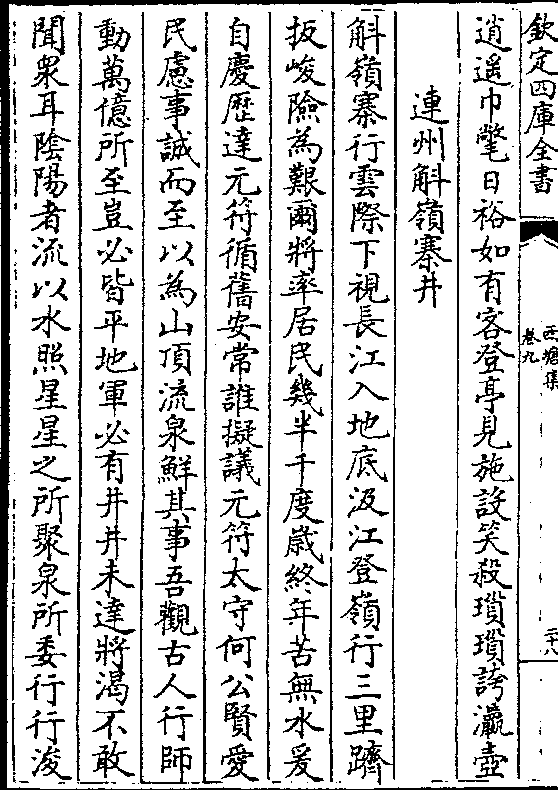 欽定四庫全書
西塘集
卷九
二十八
逍遥巾氅日裕如有客登亭見施設笑殺瑣瑣誇瀛壺
連州斛嶺寨井
斛嶺寨行雲際下視長江入地底汲江登嶺行三里躋
扳峻險為艱爾將率居民幾半千度嵗終年苦無水爰
自慶歴達元符循舊安常誰擬議元符太守何公賢愛
民慮事誠而至以為山頂流泉鮮其事吾觀古人行師
動萬億所至豈必皆平地軍必有井井未達將渴不敢
聞衆耳陰陽者流以水照星星之所聚泉所委行行浚